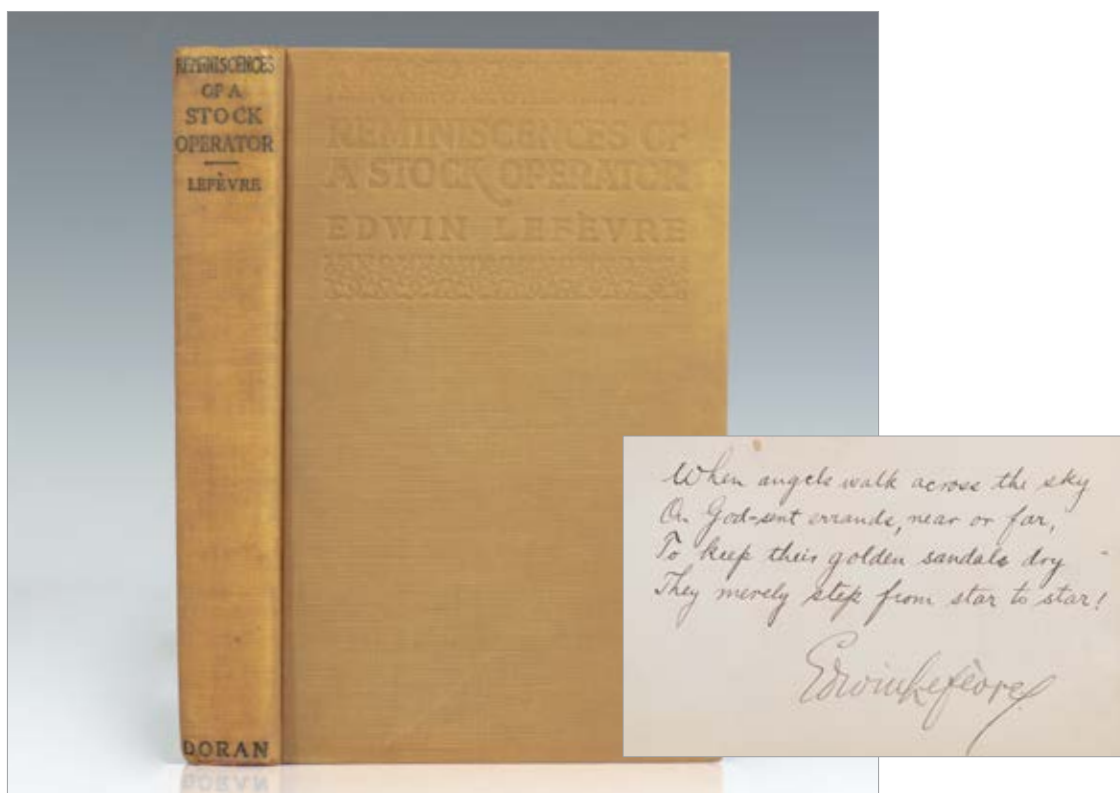 REMINISCENCES
OF A
STOCK
OPERATOR
LEFÈVRE
DORAN
REMINISCENCES OF
A STOCK OPERATOR
EDWIN LEFÈVRE
When angels walk across the sky
On God-sent errands, near or far,
To keep their golden sandals dry
They merely step from star to star!
Edwin Lefèvre